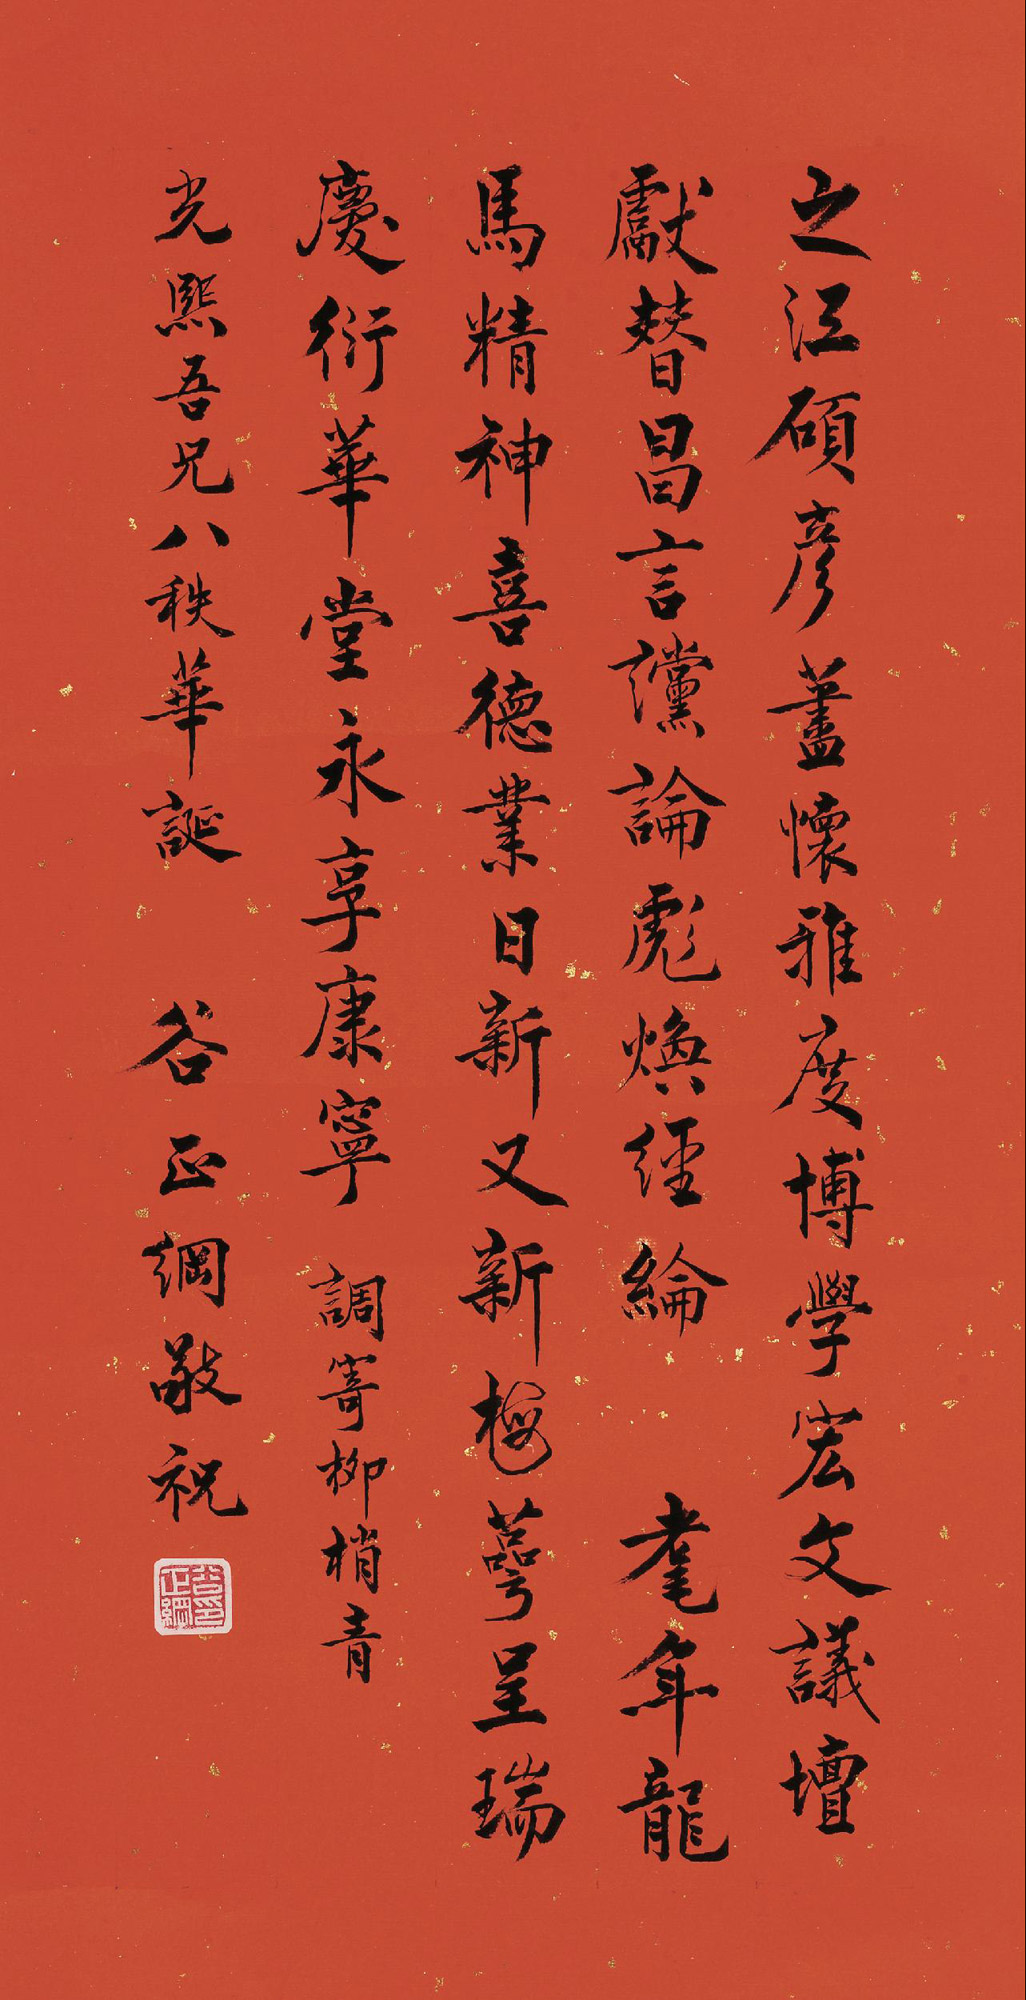 之江碩彥藎懷雅度博學宏文議壇
獻替昌言讜論彪煥經綸 耄年龍
馬精神喜德業日新又新梅萼呈瑞
慶衍華堂永享康寧 調寄柳梢青
光熙吾兄八秩華誕 谷正綱敬祝
谷正綱印